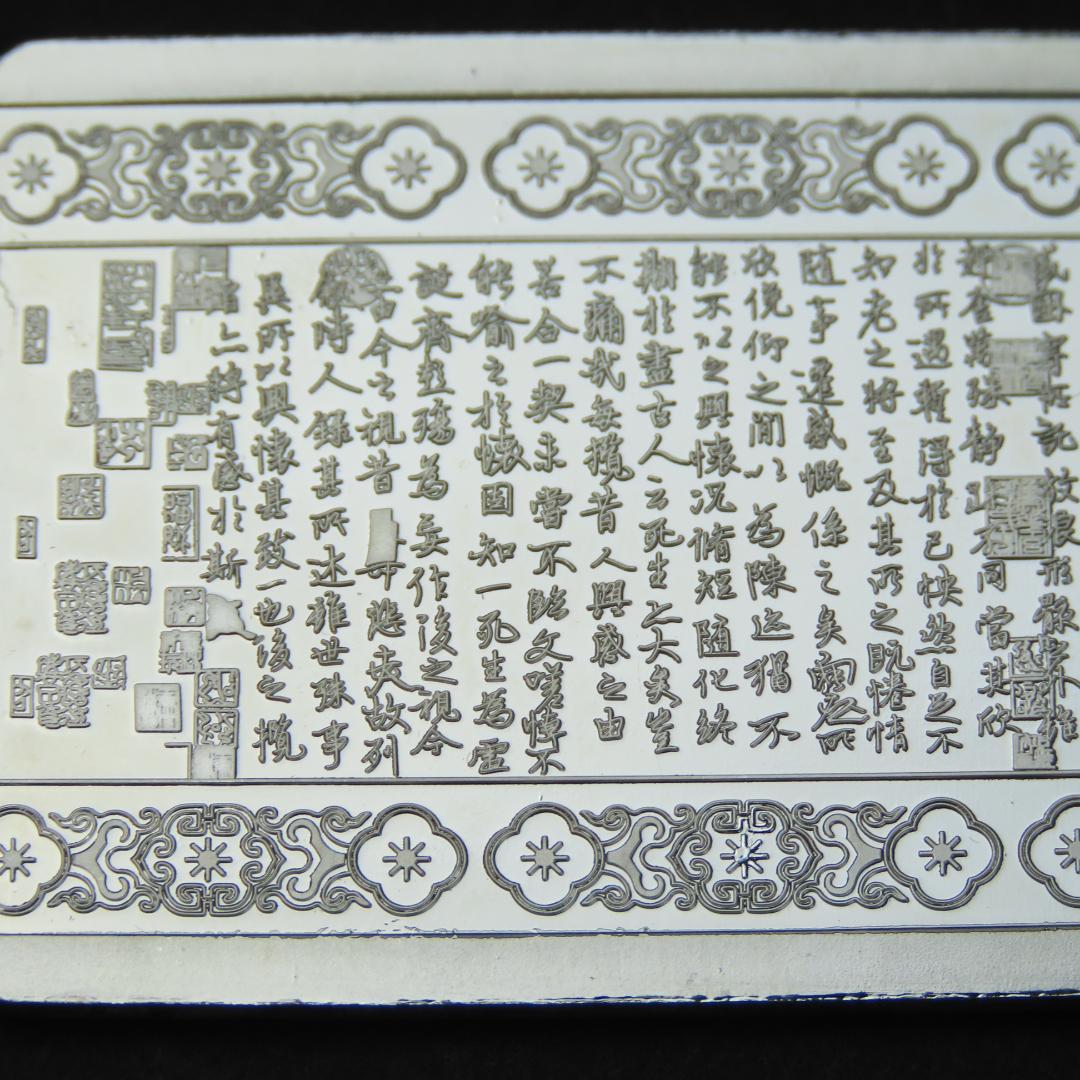 或因寄所託放浪形骸之外雖
趣舍萬殊靜躁不同當其欣
於所遇暫得於己怏然自足不
知老之將至及其所之既惓情
隨事遷感慨係之矣向之所
欣俛仰之間以為陳迹猶不
能不以之興懷況脩短隨化終
期於盡古人云死生亦大矣豈
不痛哉每攬昔人興感之由
若合一契未嘗不臨文嗟悼不
能喻之於懷固知一死生為虛
誕齊彭殤為妄作後之視今
由今之視昔悲夫故列
敘時人錄其所述雖世殊事
異所以興懷其致一也後之攬
者亦將有感於斯